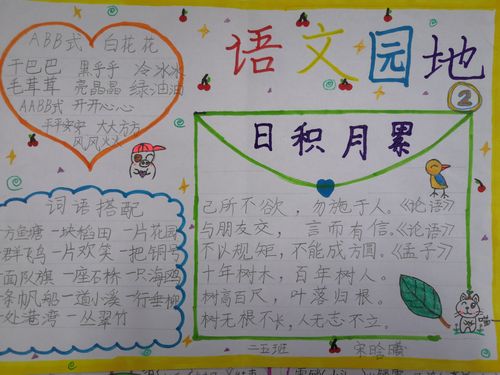 语文园地
2
ABB式 白花花
干巴巴 黑乎乎 冷冰冰
毛茸茸 亮晶晶 绿油油
AABB式 开开心心
平平安安 大大方方
风风火火
日积月累
己所不欲，勿施于人。《论语》
与朋友交，言而有信。《论语》
不以规矩，不能成方圆。《孟子》
十年树木，百年树人。
树高百尺，叶落归根。
树无根不长，人无志不立。
词语搭配
一方鱼塘 一块稻田 一片花园
一群飞鸟 一片欢笑 一把铜号
一面队旗 一座石桥 一只海鸥
一条帆船 一道小溪 一行垂柳
一处港湾 一丛翠竹
二五班 宋晗